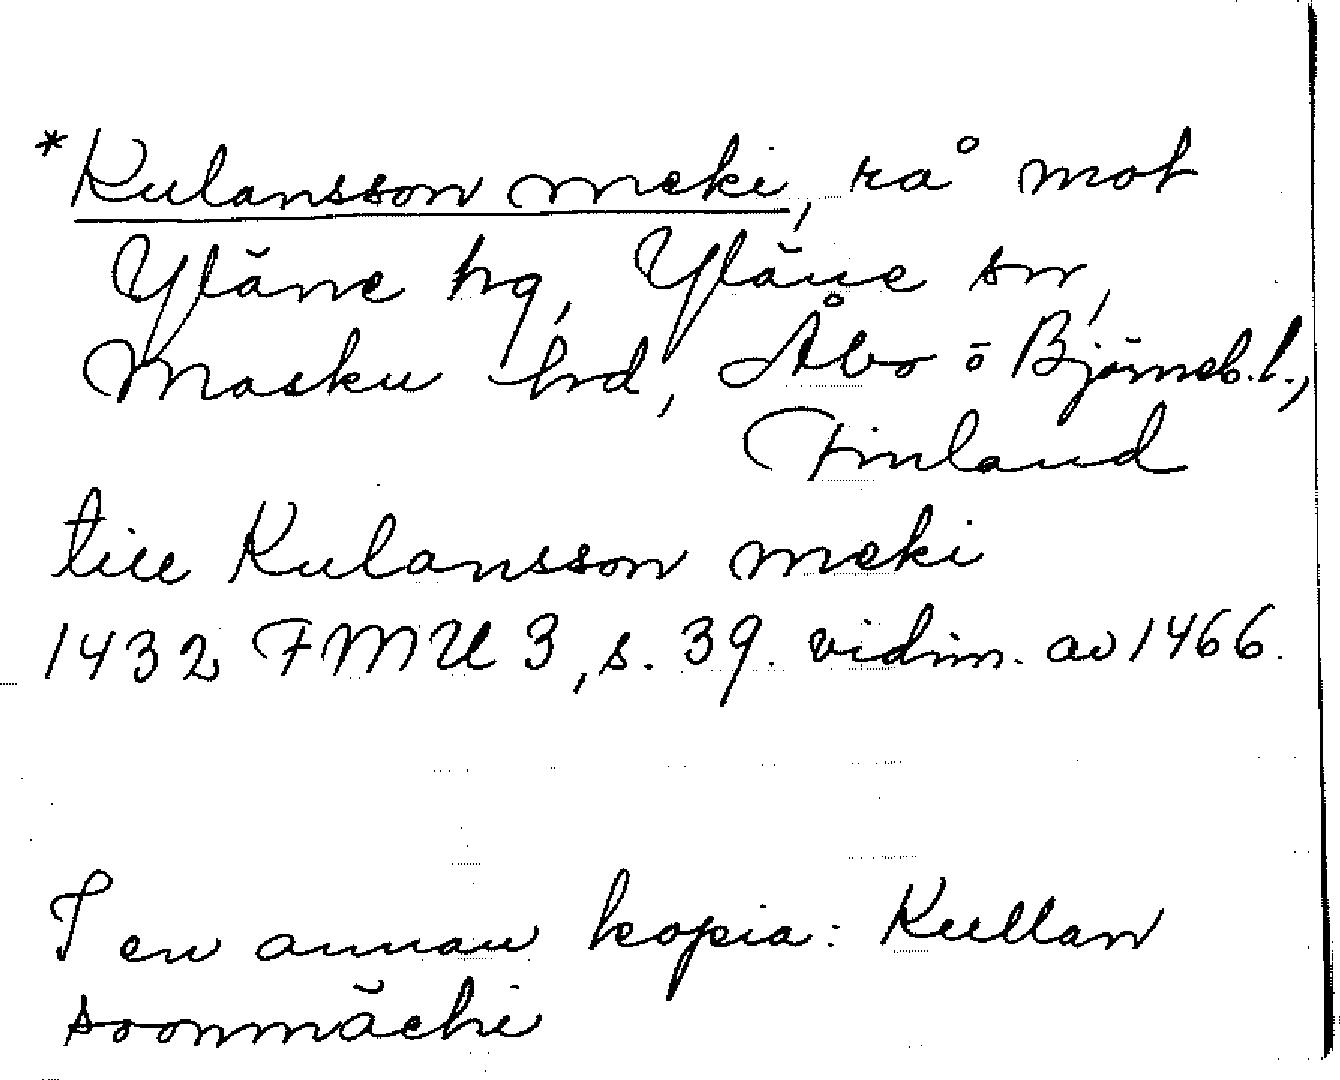 *Kulansson meki, rå mot
Yläne hg, Yläne sn,
Masku hd, Åbo o Björneb. l.,
Finland
till Kulansson meki
1432 FMU 3, s. 39. vidim. av 1466.
I en annan kopia: Kullan
soonmächi